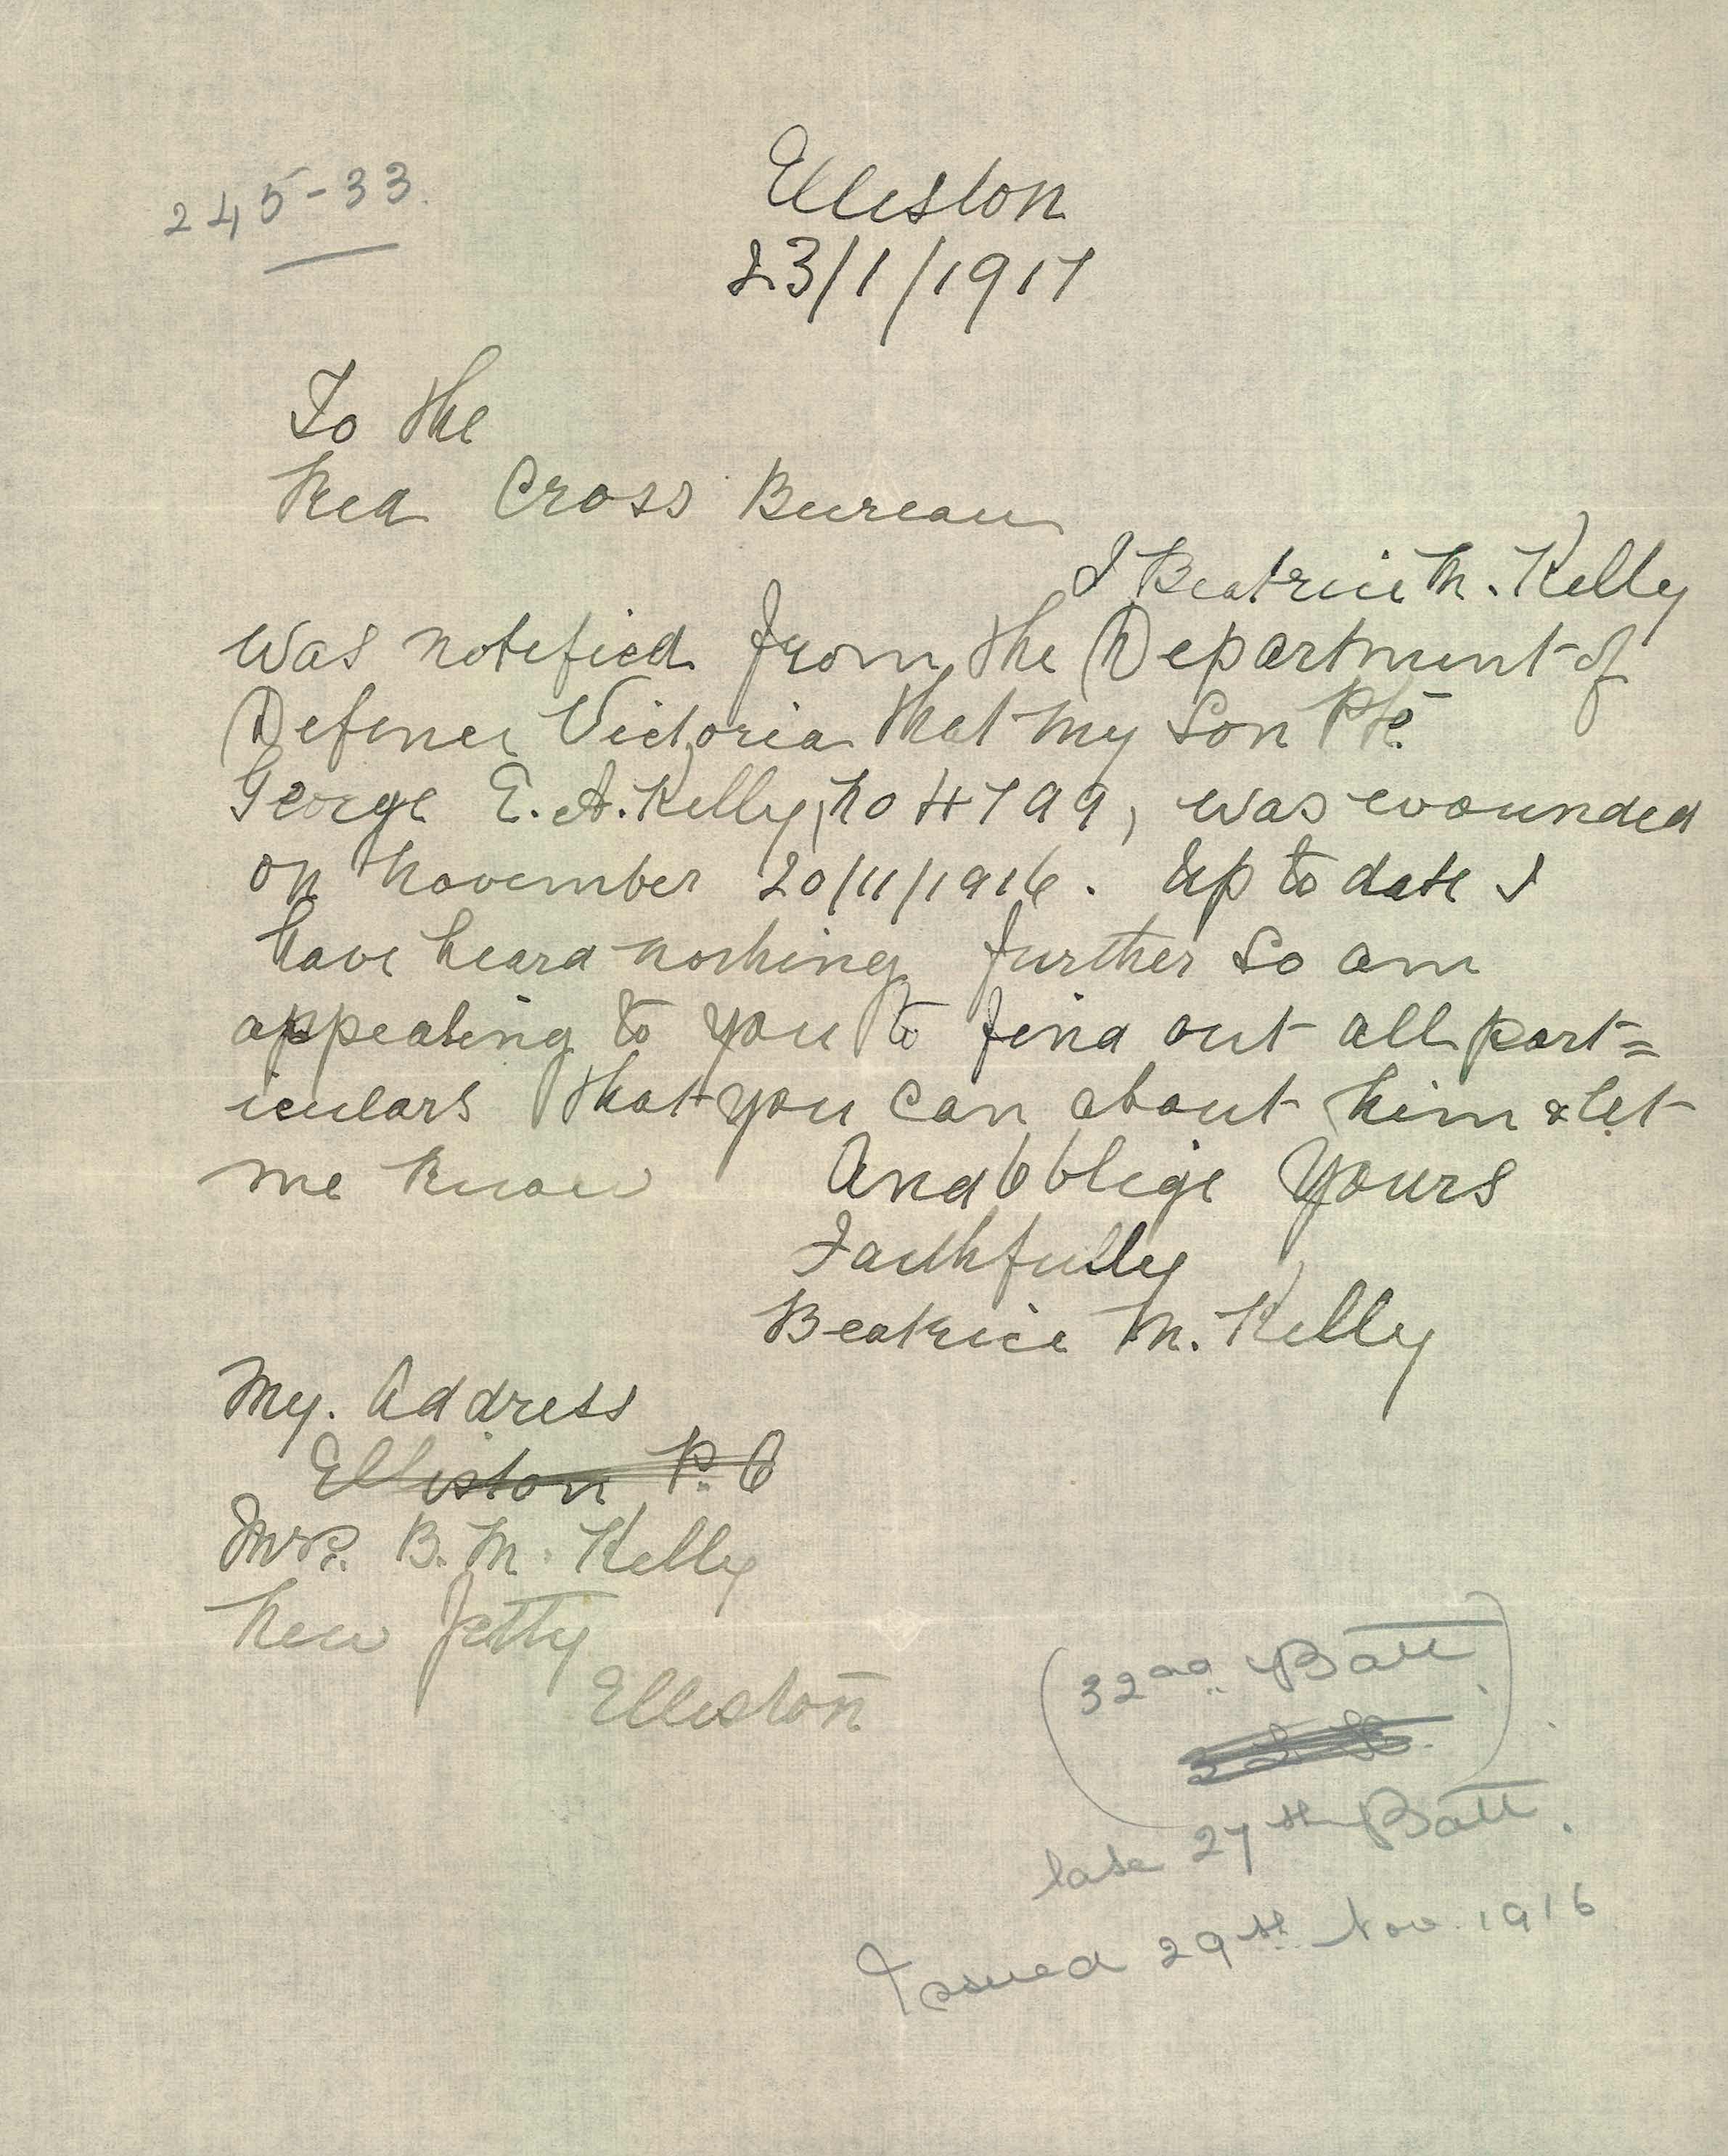 245-33.
Elliston
23/1/1917
To the
Red Cross Bureau
I Beatrice M. Kelly
was notified from the Department of
Defence Victoria that my Son Pte.
George E. A. Kelly, No 4799, was wounded
on November 20/11/1916. Up to date I
have heard nothing further so am
appealing to you to find out all part=
iculars that you can about him & let
me know And Oblige Yours
Faithfully
Beatrice M. Kelly
My. Address
Elliston P.O
Mrs. B. M. Kelly
New Jetty
Elliston
(32nd Batt.)
late 27th Batt.
Issued 29th Nov. 1916